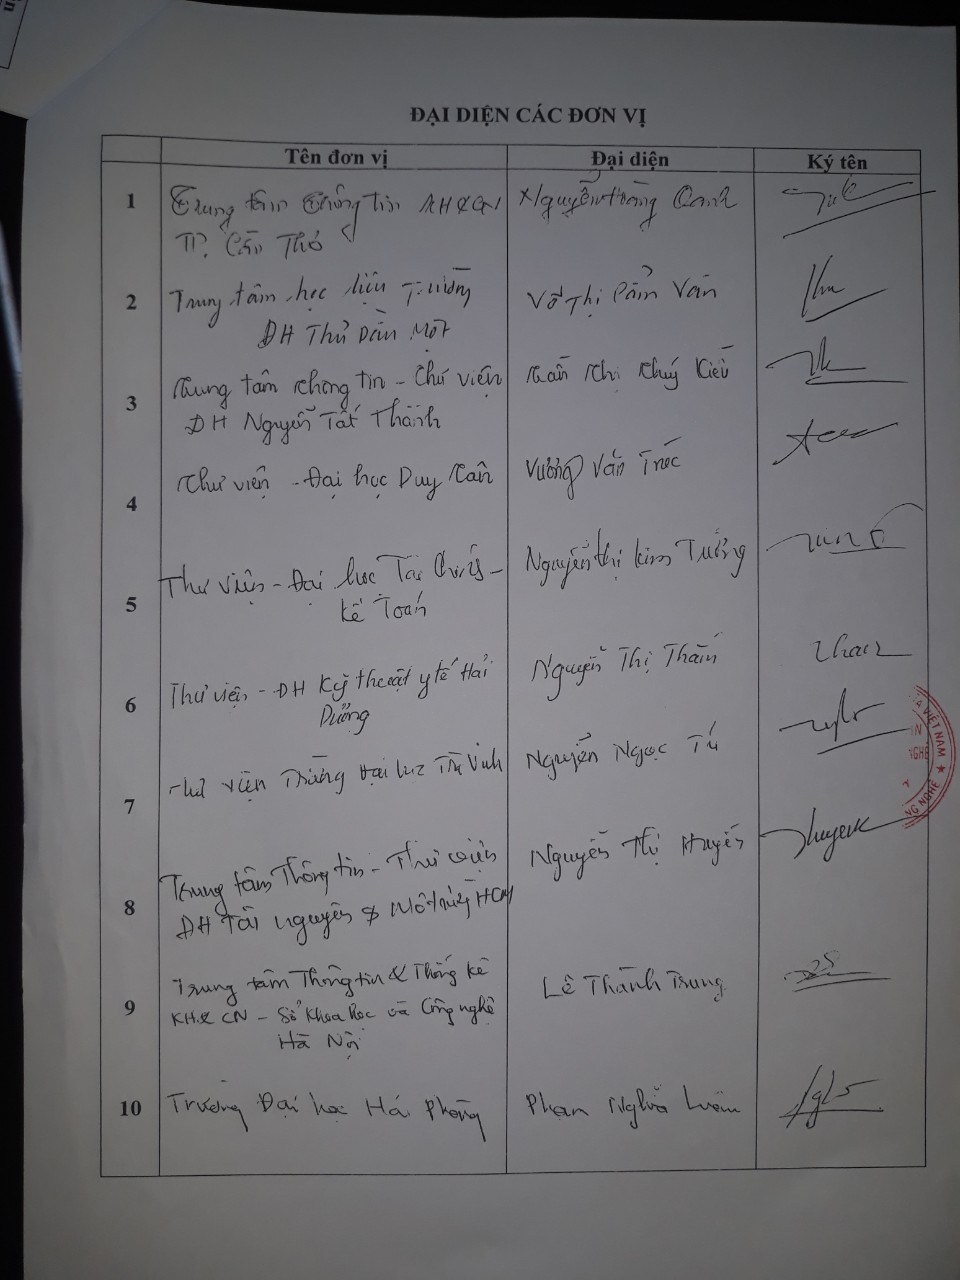 ĐẠI DIỆN CÁC ĐƠN VỊ
Tên đơn vị Đại diện Ký tên
1 Trung tâm Thông tin KH&CN Nguyễn Hoàng Oanh
TP. Cần Thơ
2 Trung tâm học liệu Trường Võ Thị Cẩm Vân
ĐH Thủ Dầu Một
3 Trung tâm Thông tin - Thư viện Trần Thị Thúy Kiều
ĐH Nguyễn Tất Thành
4 Thư viện - Đại học Duy Tân Vương Văn
5 Thư viện - Đại học Tài Chính - Nguyễn Thị Kim Tưởng
kế Toán
6 Thư viện - ĐH Kỹ thuật y tế Hải Nguyễn Thị Thắm
Dương
7 Thư viện Trường Đại học Trà Vinh Nguyễn Ngọc Tú
8 Trung tâm Thông tin - Thư viện Nguyễn Thị Huyền
ĐH Tài nguyên & Môi trường HCM
9 Trung tâm Thông tin & Thống kê Lê Thành Trung
KH& CN - Sở Khoa học và Công nghệ
Hà Nội
10 Trường Đại học Hải Phòng Phạm Nghĩa
VIỆT NAM
NG NGHỆ